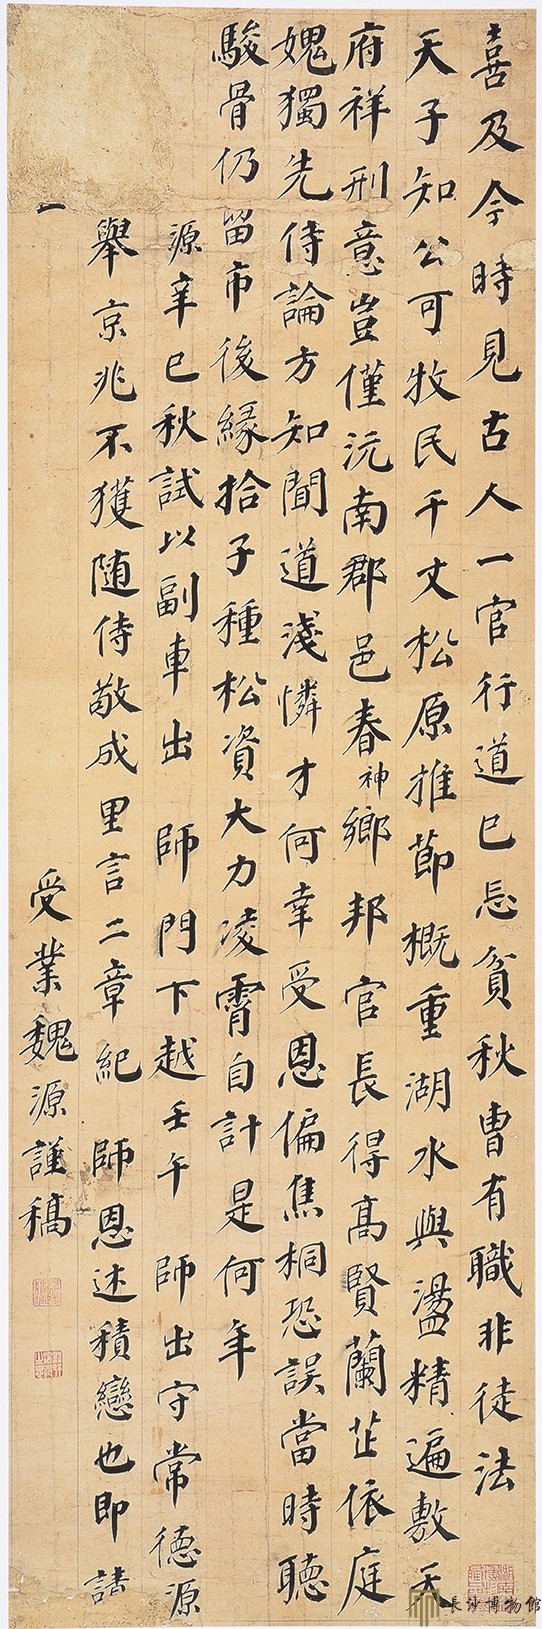 喜及今時見古人一官行道已忘貧秋曹有職非徒法
天子知公可牧民千丈松原推節概重湖水與盪精遍敷天
府祥刑意豈僅沅南郡邑春神鄉邦官長得高賢蘭芷依庭
媿獨先侍論方知聞道淺憐才何幸受恩偏焦桐恐誤當時聽
駿骨仍留市後緣拾子種松資大力凌霄自計是何年
源辛巳秋試以副車出師門下越壬午師出守常德源
一舉京兆不獲随侍敬成里言二章紀師恩述積戀也即請
受業魏源謹稿
長沙博物館